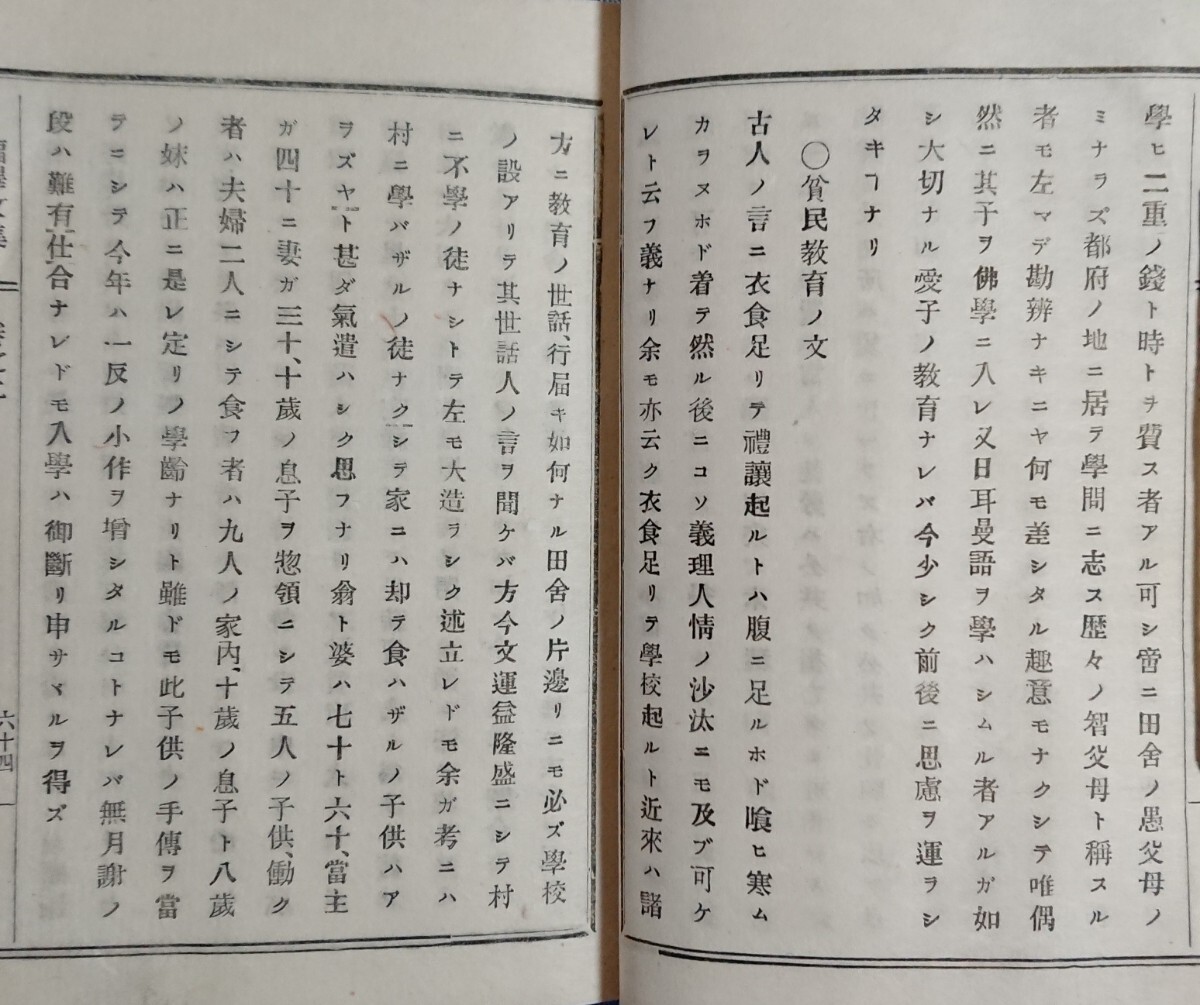 學ヒ二重ノ錢ト時トヲ費ス者アル可シ啻ニ田舍ノ愚父母ノ
ミナラズ都府ノ地ニ居テ學問ニ志ス歷々ノ智父母ト稱スル
者モ左マデ勘辨ナキニヤ何モ差シタル趣意モナクシテ唯偶
然ニ其子ヲ佛學ニ入レ又日耳曼語ヲ學ハシムル者アルガ如
シ大切ナル愛子ノ教育ナレバ今少シク前後ニ思慮ヲ運ラシ
タキヿナリ
〇貧民教育ノ文
古人ノ言ニ衣食足リテ禮讓起ルトハ腹ニ足ルホド喰ヒ寒ム
カラヌホド着テ然ル後ニコソ義理人情ノ沙汰ニモ及ブ可ケ
レト云フ義ナリ余モ亦云ク衣食足リテ學校起ルト近來ハ諸
方ニ教育ノ世話、行届キ如何ナル田舍ノ片邊リニモ必ズ學校
ノ設アリテ其世話人ノ言ヲ聞ケバ方今文運益隆盛ニシテ村
ニ不學ノ徒ナシトテ左モ大造ラシク述立レドモ余ガ考ニハ
村ニ學バザルノ徒ナクシテ家ニハ却テ食ハザルノ子供ハア
ラズヤト甚ダ氣遣ハシク思フナリ翁ト婆ハ七十ト六十、當主
ガ四十ニ妻ガ三十、十歲ノ息子ヲ惣領ニシテ五人ノ子供、働ク
者ハ夫婦二人ニシテ食フ者ハ九人ノ家内、十歲ノ息子ト八歲
ノ妹ハ正ニ是レ定リノ學齡ナリト雖ドモ此子供ノ手傳ヲ當
テニシテ今年ハ一反ノ小作ヲ增シタルコトナレバ無月謝ノ
段ハ難有仕合ナレドモ入學ハ御斷リ申サヾルヲ得ズ
六十四